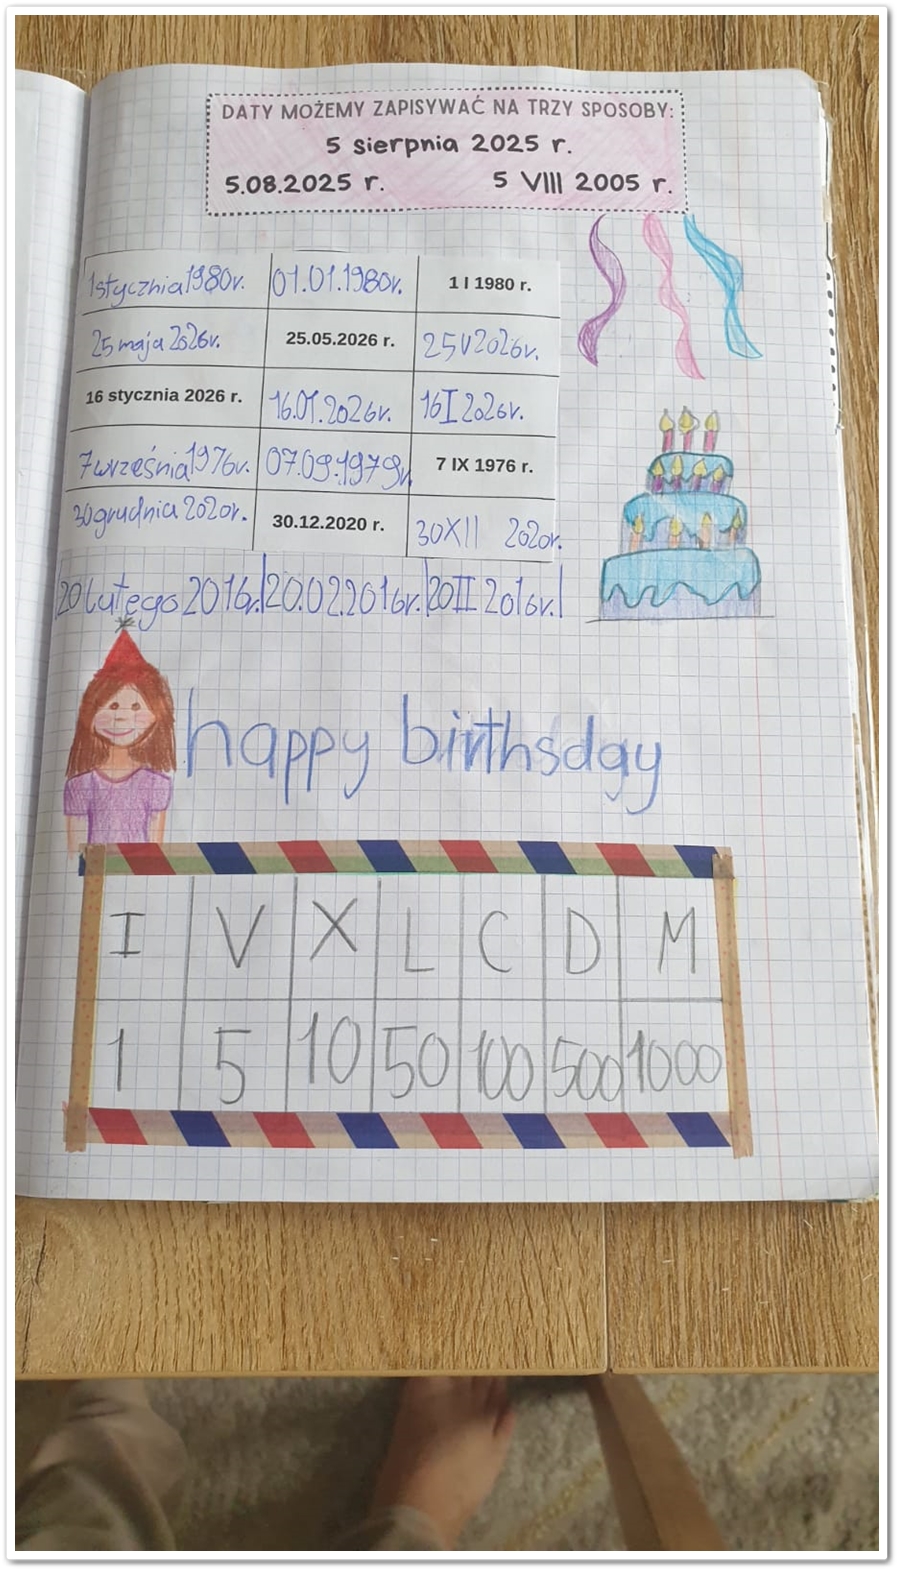 DATY MOŻEMY ZAPISYWAĆ NA TRZY SPOSOBY:
5 sierpnia 2025 r.
5.08.2025 r. 5 VIII 2005 r.
1 stycznia 1980r. 01.01.1980r. 1 I 1980 r.
25 maja 2026r. 25.05.2026 r. 25 V 2026r.
16 stycznia 2026 r. 16.01.2026r. 16 I 2026r.
7 września 1976r. 07.09.1979r. 7 IX 1976 r.
30 grudnia 2020r. 30.12.2020 r. 30 XII 2020r.
20 lutego 2016r. 20.02.2016r. 20 II 2016r.
happy birthsday
I V X L C D M
1 5 10 50 100 500 1000